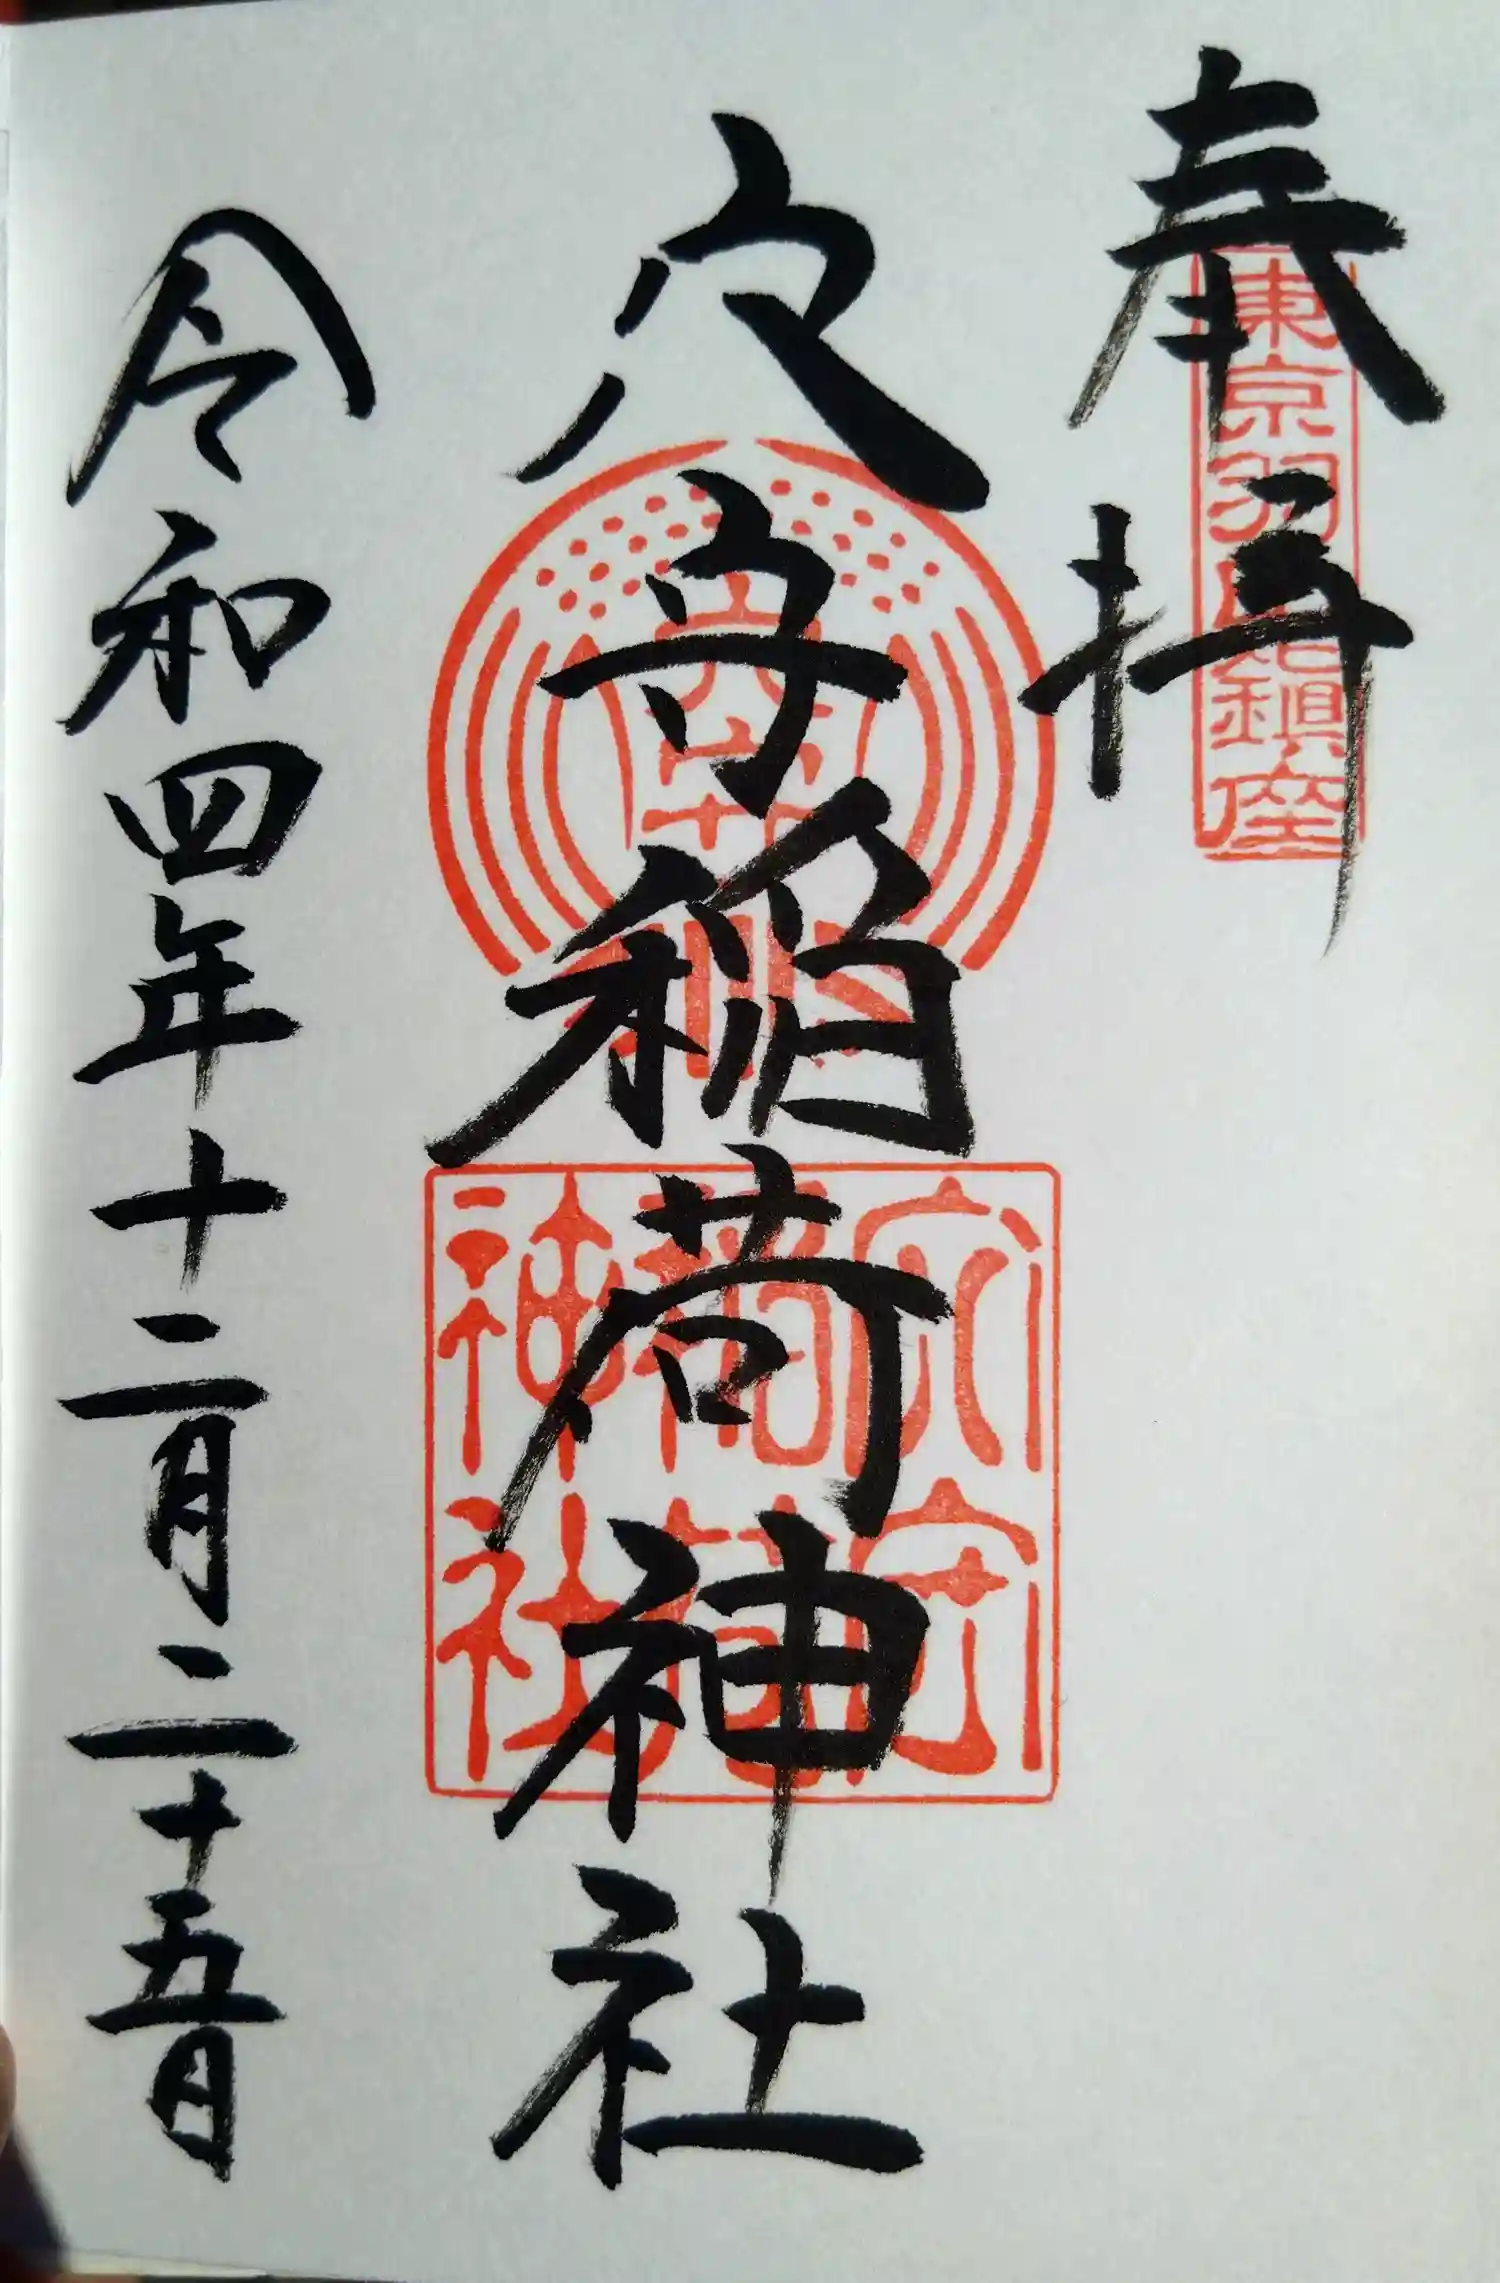 奉拝
東京羽田鎮座
穴守稲荷神社
穴守稲荷神社
令和四年十二月二十五日